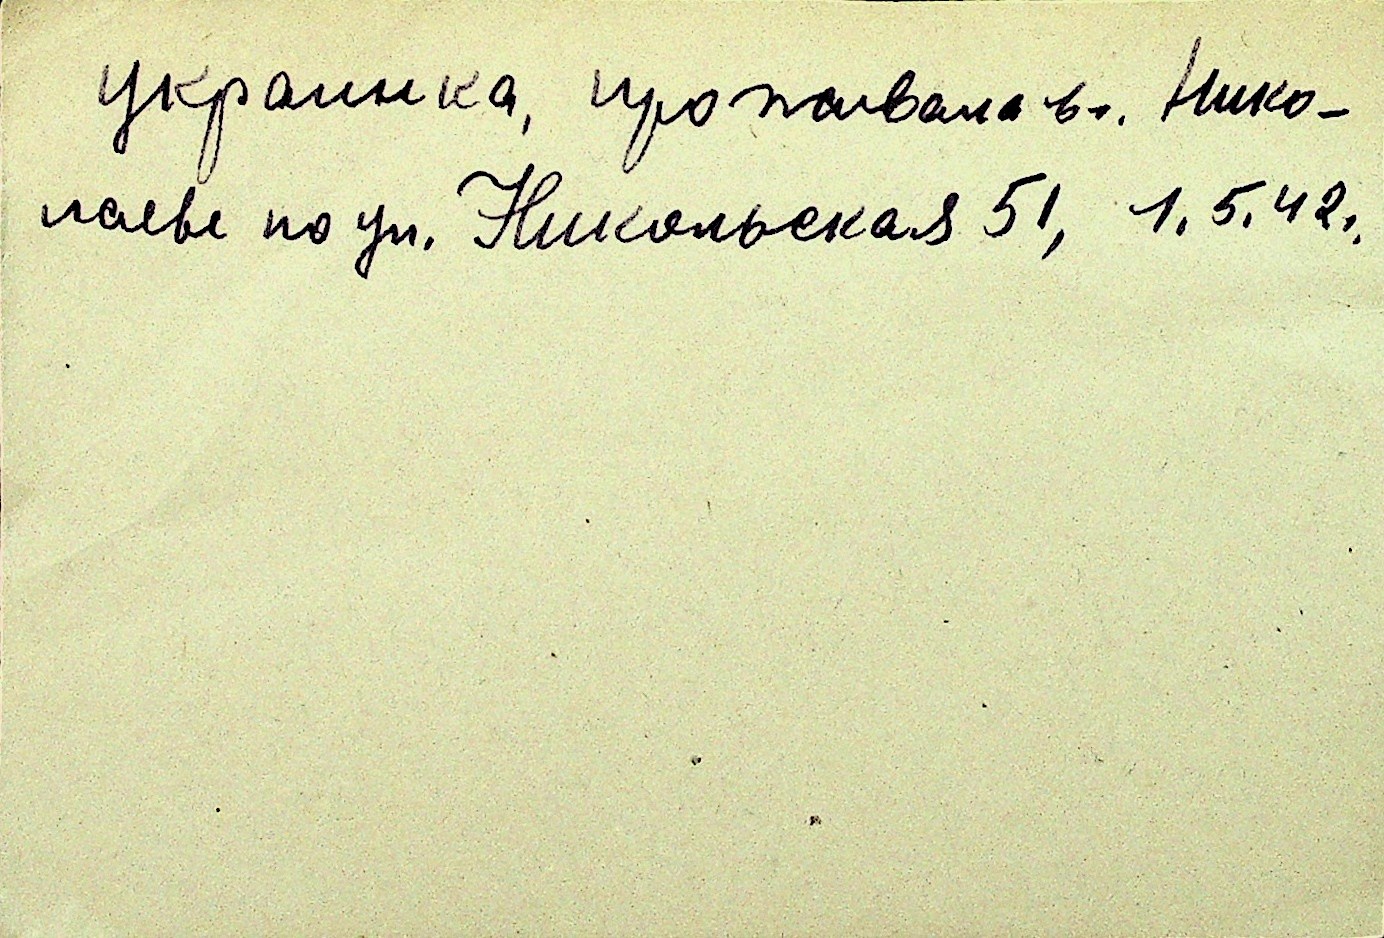 украинка, проживала в г. Нико-
лаеве по ул. Никольская 51, 1.5.42г.